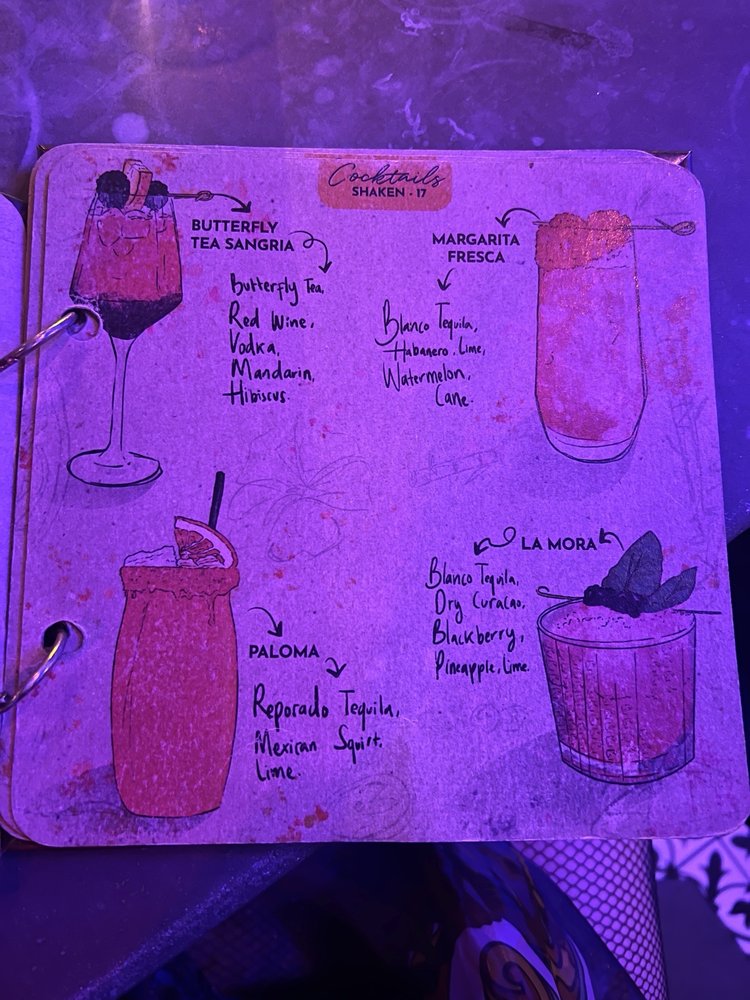 Cocktails
SHAKEN - 17
BUTTERFLY
TEA SANGRIA
Butterfly Tea,
Red Wine,
Vodka,
Mandarin,
Hibiscus.
MARGARITA
FRESCA
Blanco Tequila,
Habanero, Lime,
Watermelon,
Cane.
PALOMA
Reporado Tequila,
Mexican Squirt,
Lime.
LA MORA
Blanco Tequila,
Dry Curacao,
Blackberry,
Pineapple, Lime.